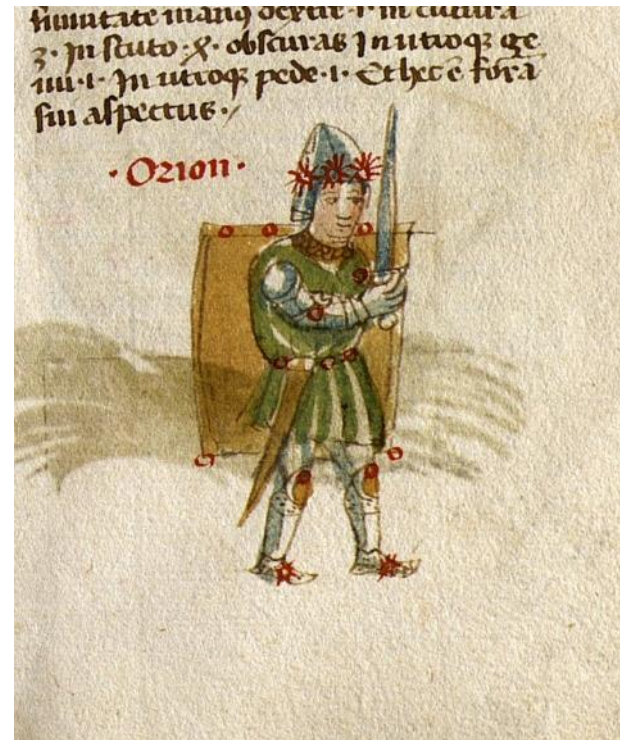 ſumitate manꝰ dextre · 1 · in cintura
3 · In ſcuto · X · obſcuras In utroqꝫ ge
nu · 1 · In utroqꝫ pede · 1 · Et hec ē forā
ſui aſpectus ·/
· Orion ·